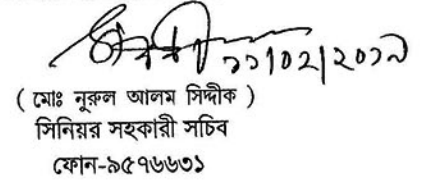 ১১/০২/২০১৯
( মোঃ নুরুল আলম সিদ্দীক )
সিনিয়র সহকারী সচিব
ফোন-৯৫৭৬৬৩১